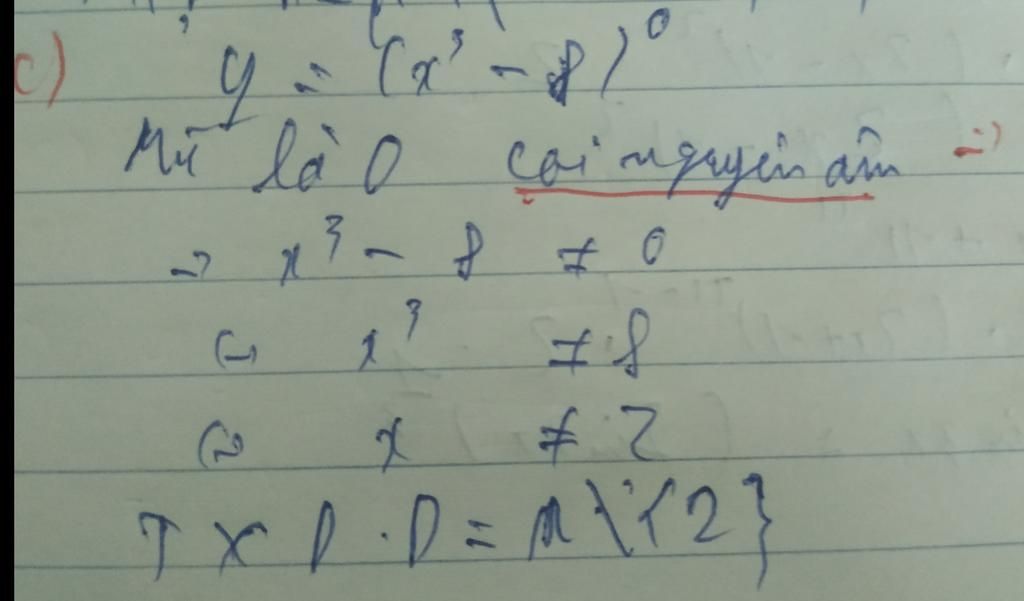 c) y = (x³ - 8)⁰
Mũ là 0 coi nguyên âm =>
=> x³ - 8 ≠ 0
<=> x³ ≠ 8
<=> x ≠ 2
TXD . D = R \ {2}